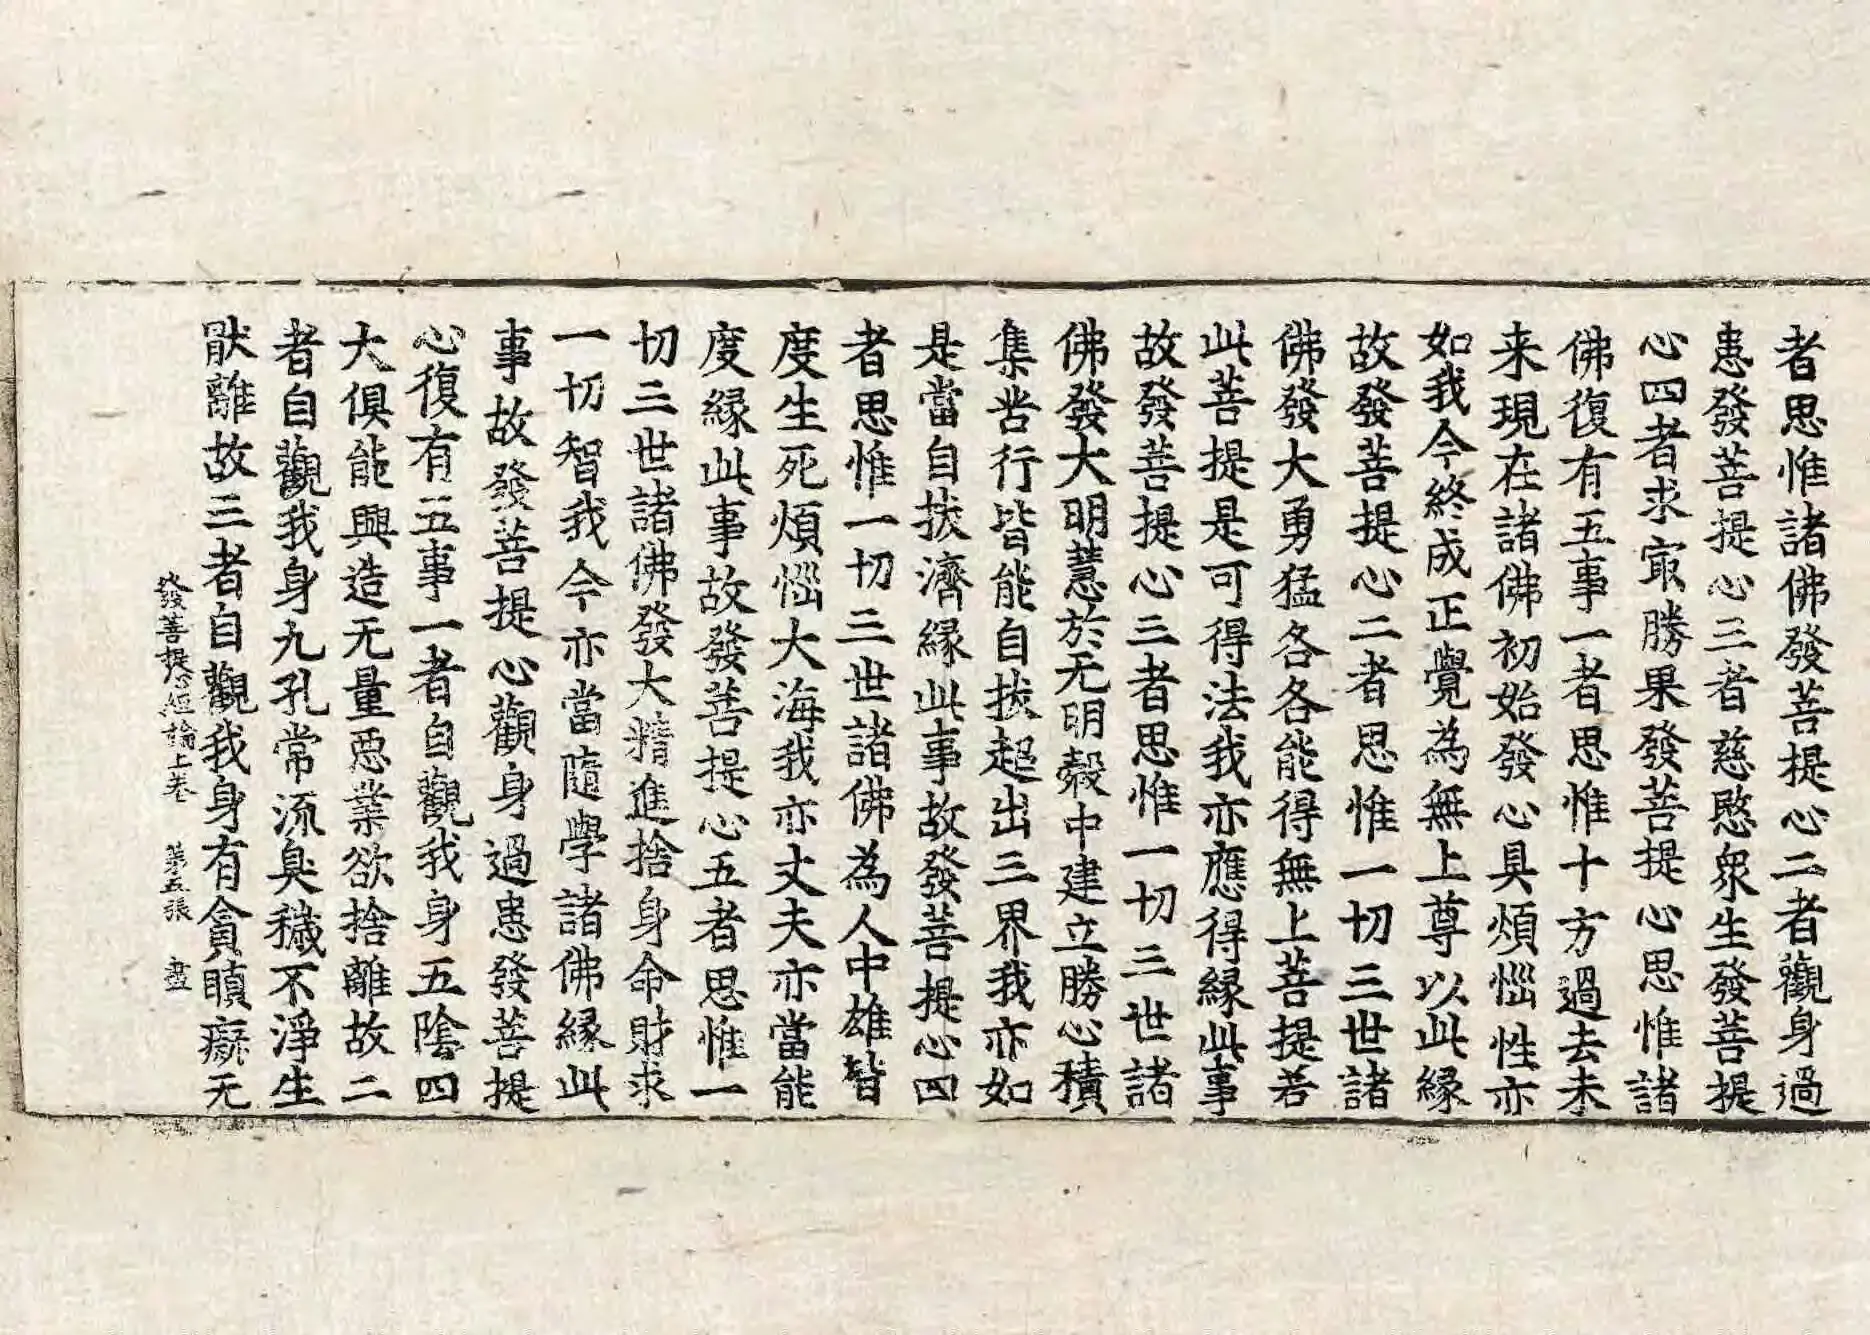 者思惟諸佛發菩提心二者觀身過
患發菩提心三者慈愍衆生發菩提
心四者求㝡勝果發菩提心思惟諸
佛復有五事一者思惟十方過去未
来現在諸佛初始發心具煩惱性亦
如我今終成正覺為無上尊以此緣
故發菩提心二者思惟一切三世諸
佛發大勇猛各各能得無上菩提若
此菩提是可得法我亦應得緣此事
故發菩提心三者思惟一切三世諸
佛發大明慧於无明㲉中建立勝心積
集苦行皆能自拔超出三界我亦如
是當自拔濟緣此事故發菩提心四
者思惟一切三世諸佛為人中雄皆
度生死煩惱大海我亦丈夫亦當能
度緣此事故發菩提心五者思惟一
切三世諸佛發大精進捨身命財求
一切智我今亦當隨學諸佛緣此
事故發菩提心觀身過患發菩提
心復有五事一者自觀我身五陰四
大俱能興造无量惡業欲捨離故二
者自觀我身九孔常流臭穢不淨生
猒離故三者自觀我身有貪瞋癡无
發菩提心經論上卷 第五張 盡